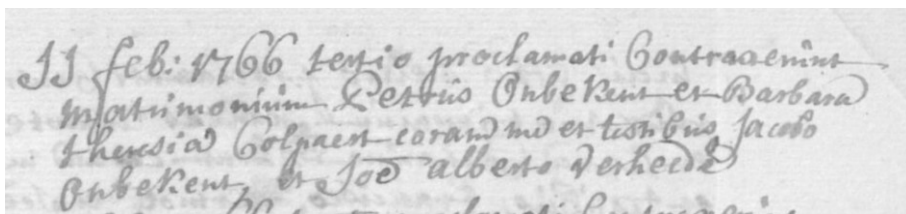 11 feb: 1766 tertio proclamati Contraxerunt
Matrimonium Petrus Onbekent et Barbara
theresia Colpaert coram me et testibus Jacobo
Onbekent, et Joe alberto Verheede